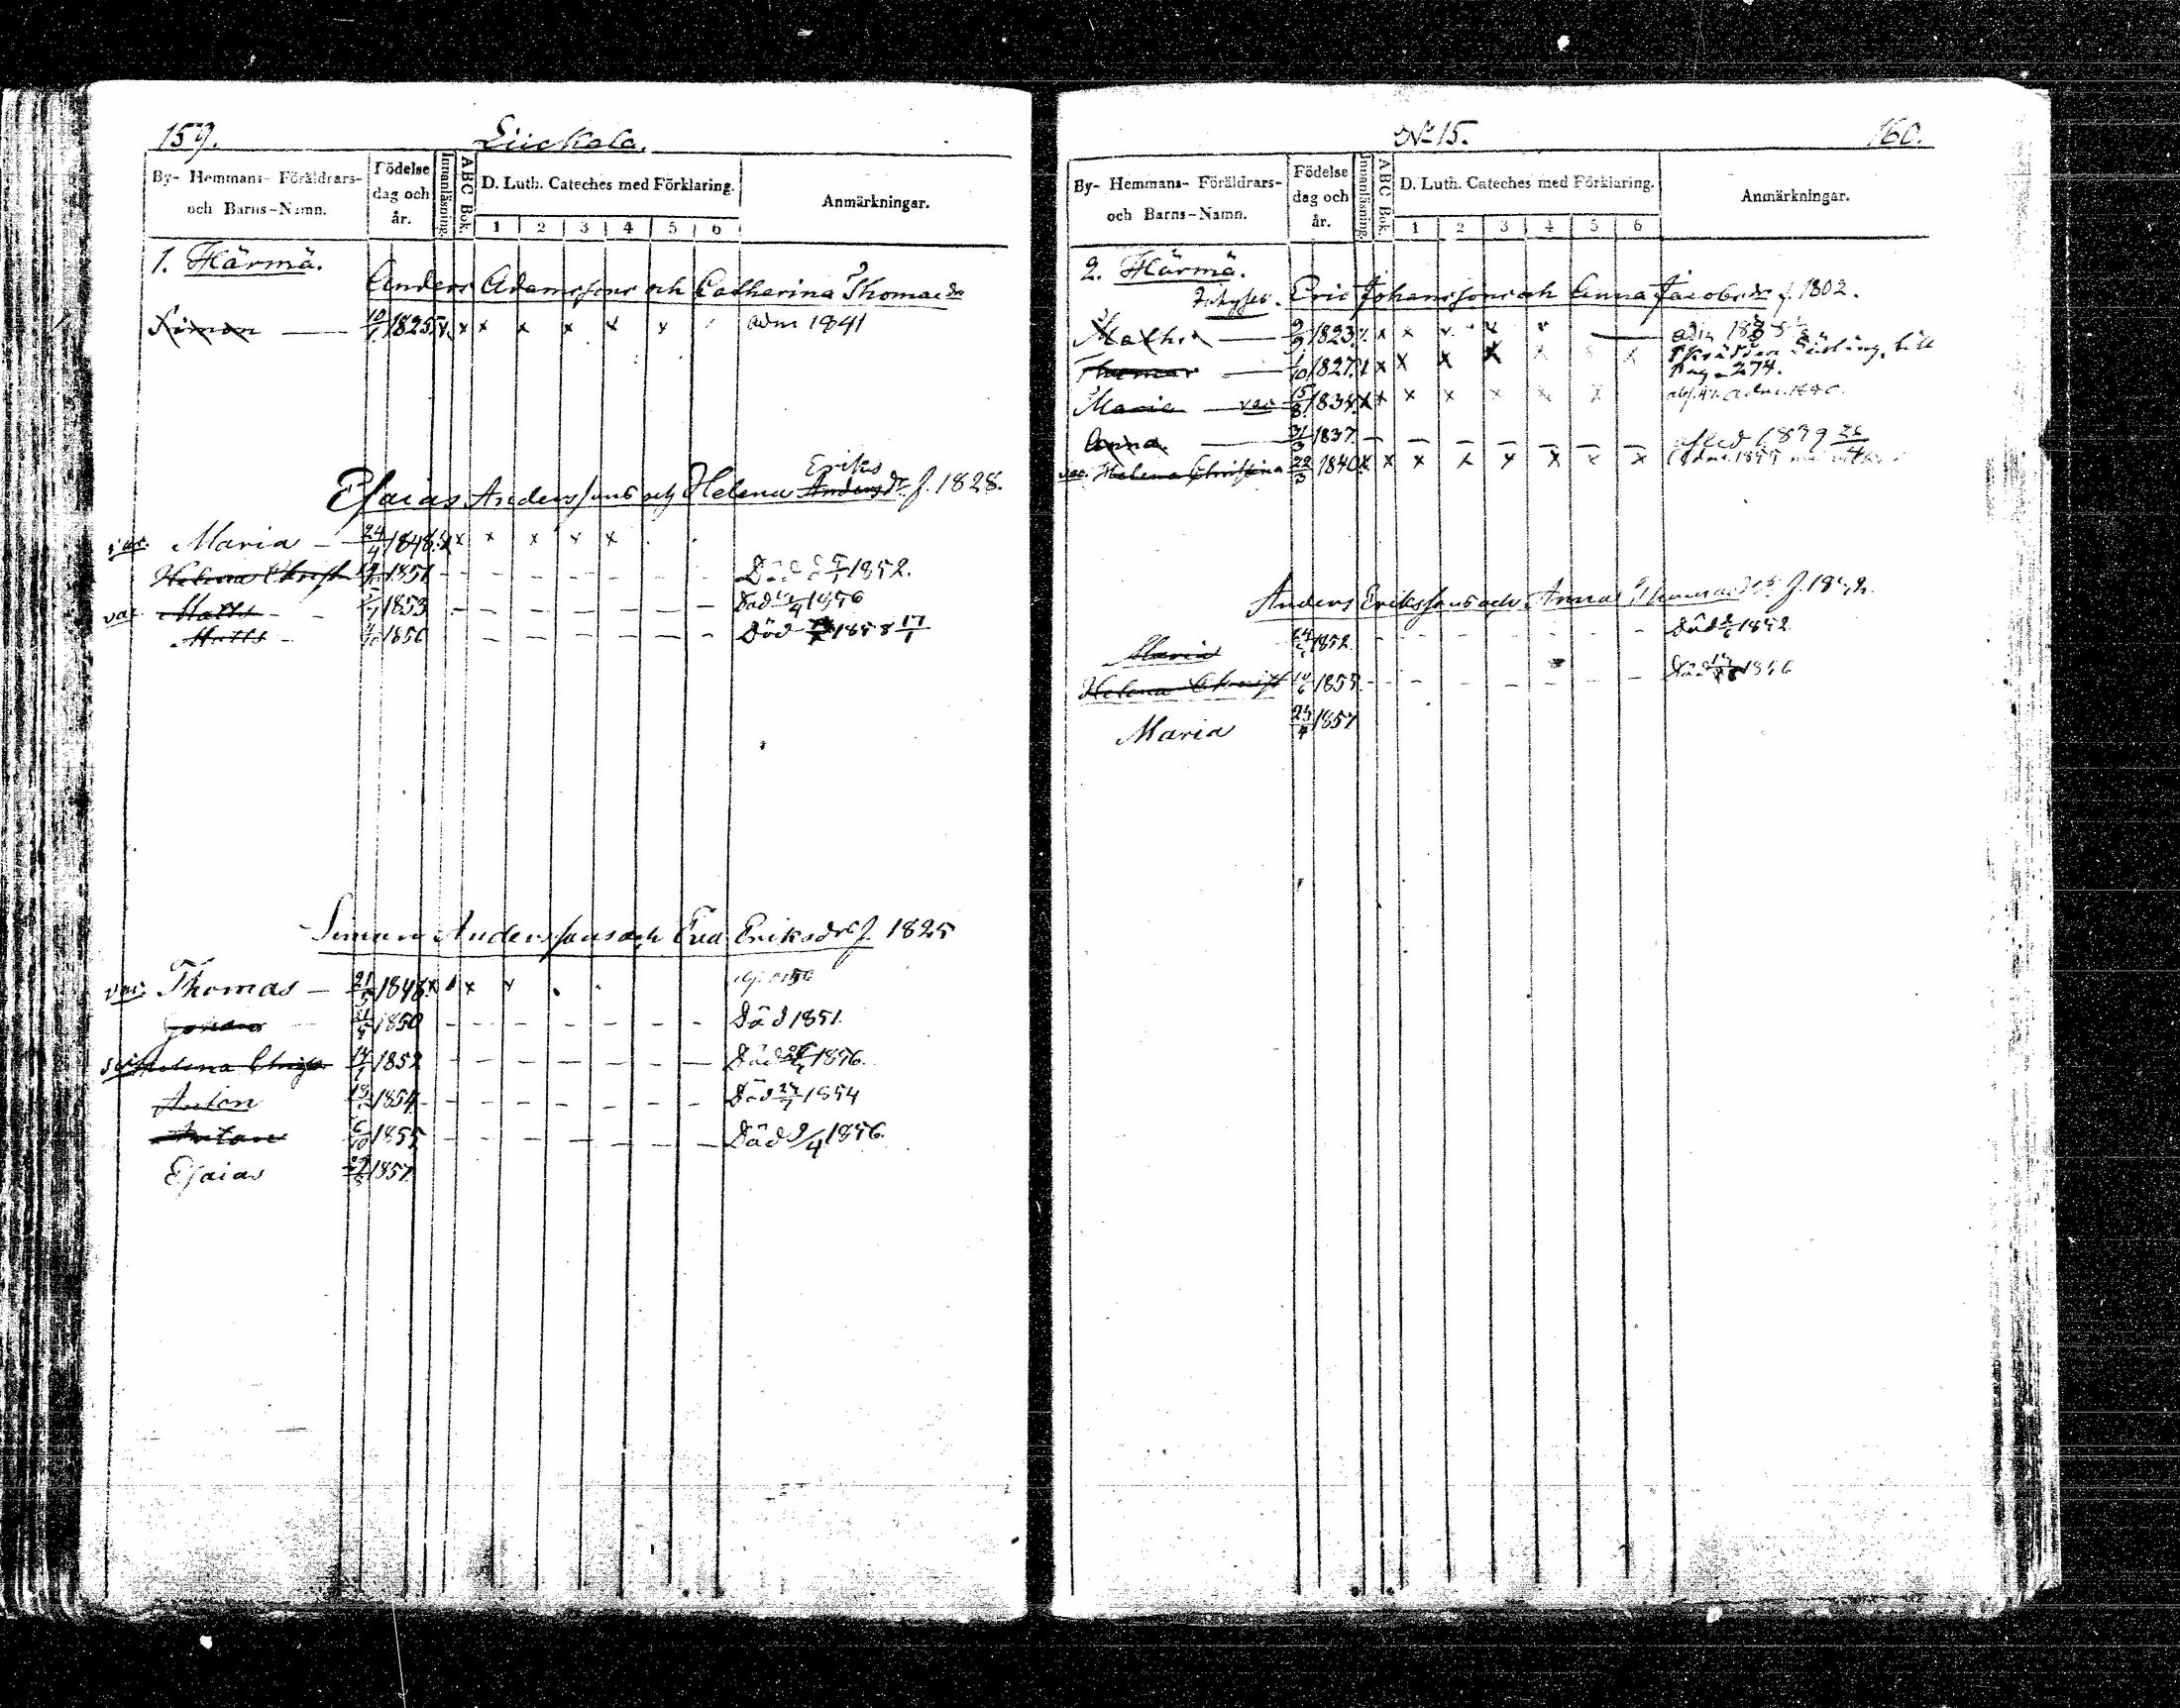 159.
Liickala.
By- Hemmans- Föräldrars- och Barns-Namn.
Födelse dag och år.
Innanläsning.
ABC Bok.
D. Luth. Cateches med Förklaring.
1 2 3 4 5 6
Anmärkningar.
1. Härmä.
Anders Adamssons och Catharina Thomaedr
Simon — 10/1 1825 x x x x x x x adm 1841
Eriks
Esaias Anderssons och Helena Andersdr f. 1828.
vac. Maria — 24/4 1848 x x x x x x
Helena Christ 1851 - - - - - - - Död 1852.
vac Matts - - 1853 - - - - - - - Död 1856
Matts - 1856 - - - - - - Död 1858 17/1
Simon Anderssons och Eva Eriksdr f. 1825
vac. Thomas — 21/5 1848 x x x
1850 - - - - - - - Död 1851.
Helena Christ 14/1 1852 - - - - - - - Död 1856.
Anton 1854 - - - - - - - Död 24/7 1854
Anton 6/10 1855 - - - - - - - Död 9/4 1856.
Esaias 1857.
No 15.
160.
By- Hemmans- Föräldrars- och Barns-Namn.
Födelse dag och år.
Innanläsning.
ABC Bok.
D. Luth. Cateches med Förklaring.
1 2 3 4 5 6
Anmärkningar.
2. Härmä.
Eric Johanssons och Anna Jacobsdr f. 1802.
Math. — 1823 x x x x x
Thomas — 1/10 1827 x x x x x x x till Pag. 274.
Maria — vac 15/8 1834 x x x x x x x
Anna — 31/3 1837 - - - - - - - afled 1839
vac. Helena Christina 22/3 1840 x x x x x x x
Anders Erikssons och Anna
Maria 1852. - - - - - - Död 1852
Helena Christ 1855 - - - - - - - Död 1856
Maria 25/4 1857